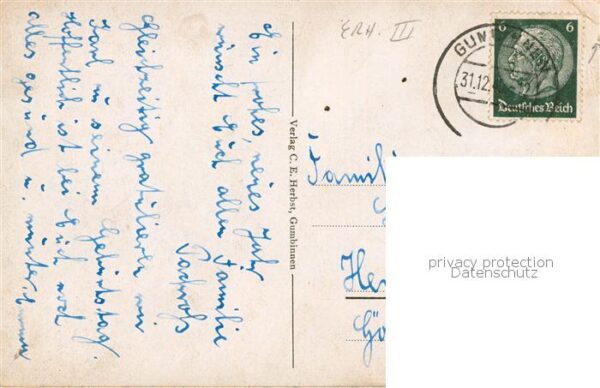 ERH. III
GUM
31.12.
6 6
Deutsches Reich
Ein frohes, neues Jahr
wünscht Euch allen Familie
gleichzeitig gratulieren wir
Karl zu seinem Geburtstag.
Hoffentlich ist bei Euch noch
alles gesund u. munter,
Verlag C. E. Herbst, Gumbinnen
Famili
He
Gö
privacy protection
Datenschutz